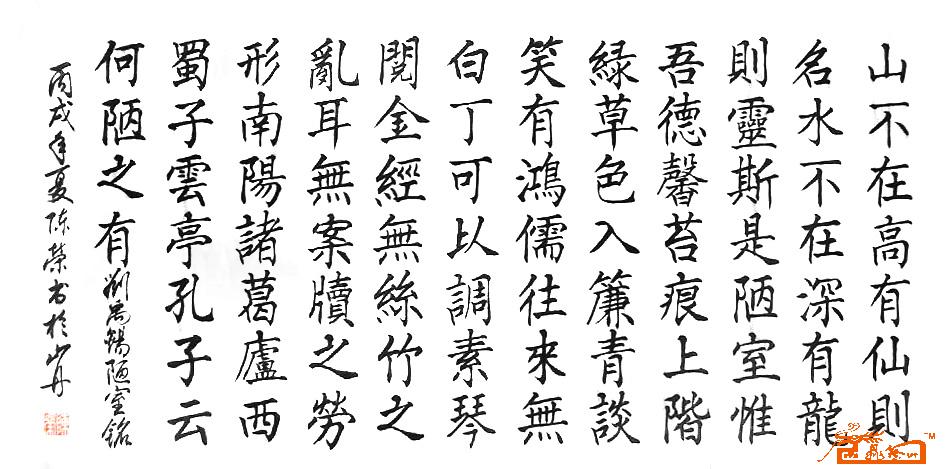 山不在高有仙則
名水不在深有龍
則靈斯是陋室惟
吾德馨苔痕上階
緑草色入簾青談
笑有鴻儒往來無
白丁可以調素琴
閱金經無絲竹之
亂耳無案牘之勞
形南陽諸葛廬西
蜀子雲亭孔子云
何陋之有 劉禹錫陋室銘
丙戌年夏陈榮书於山丹